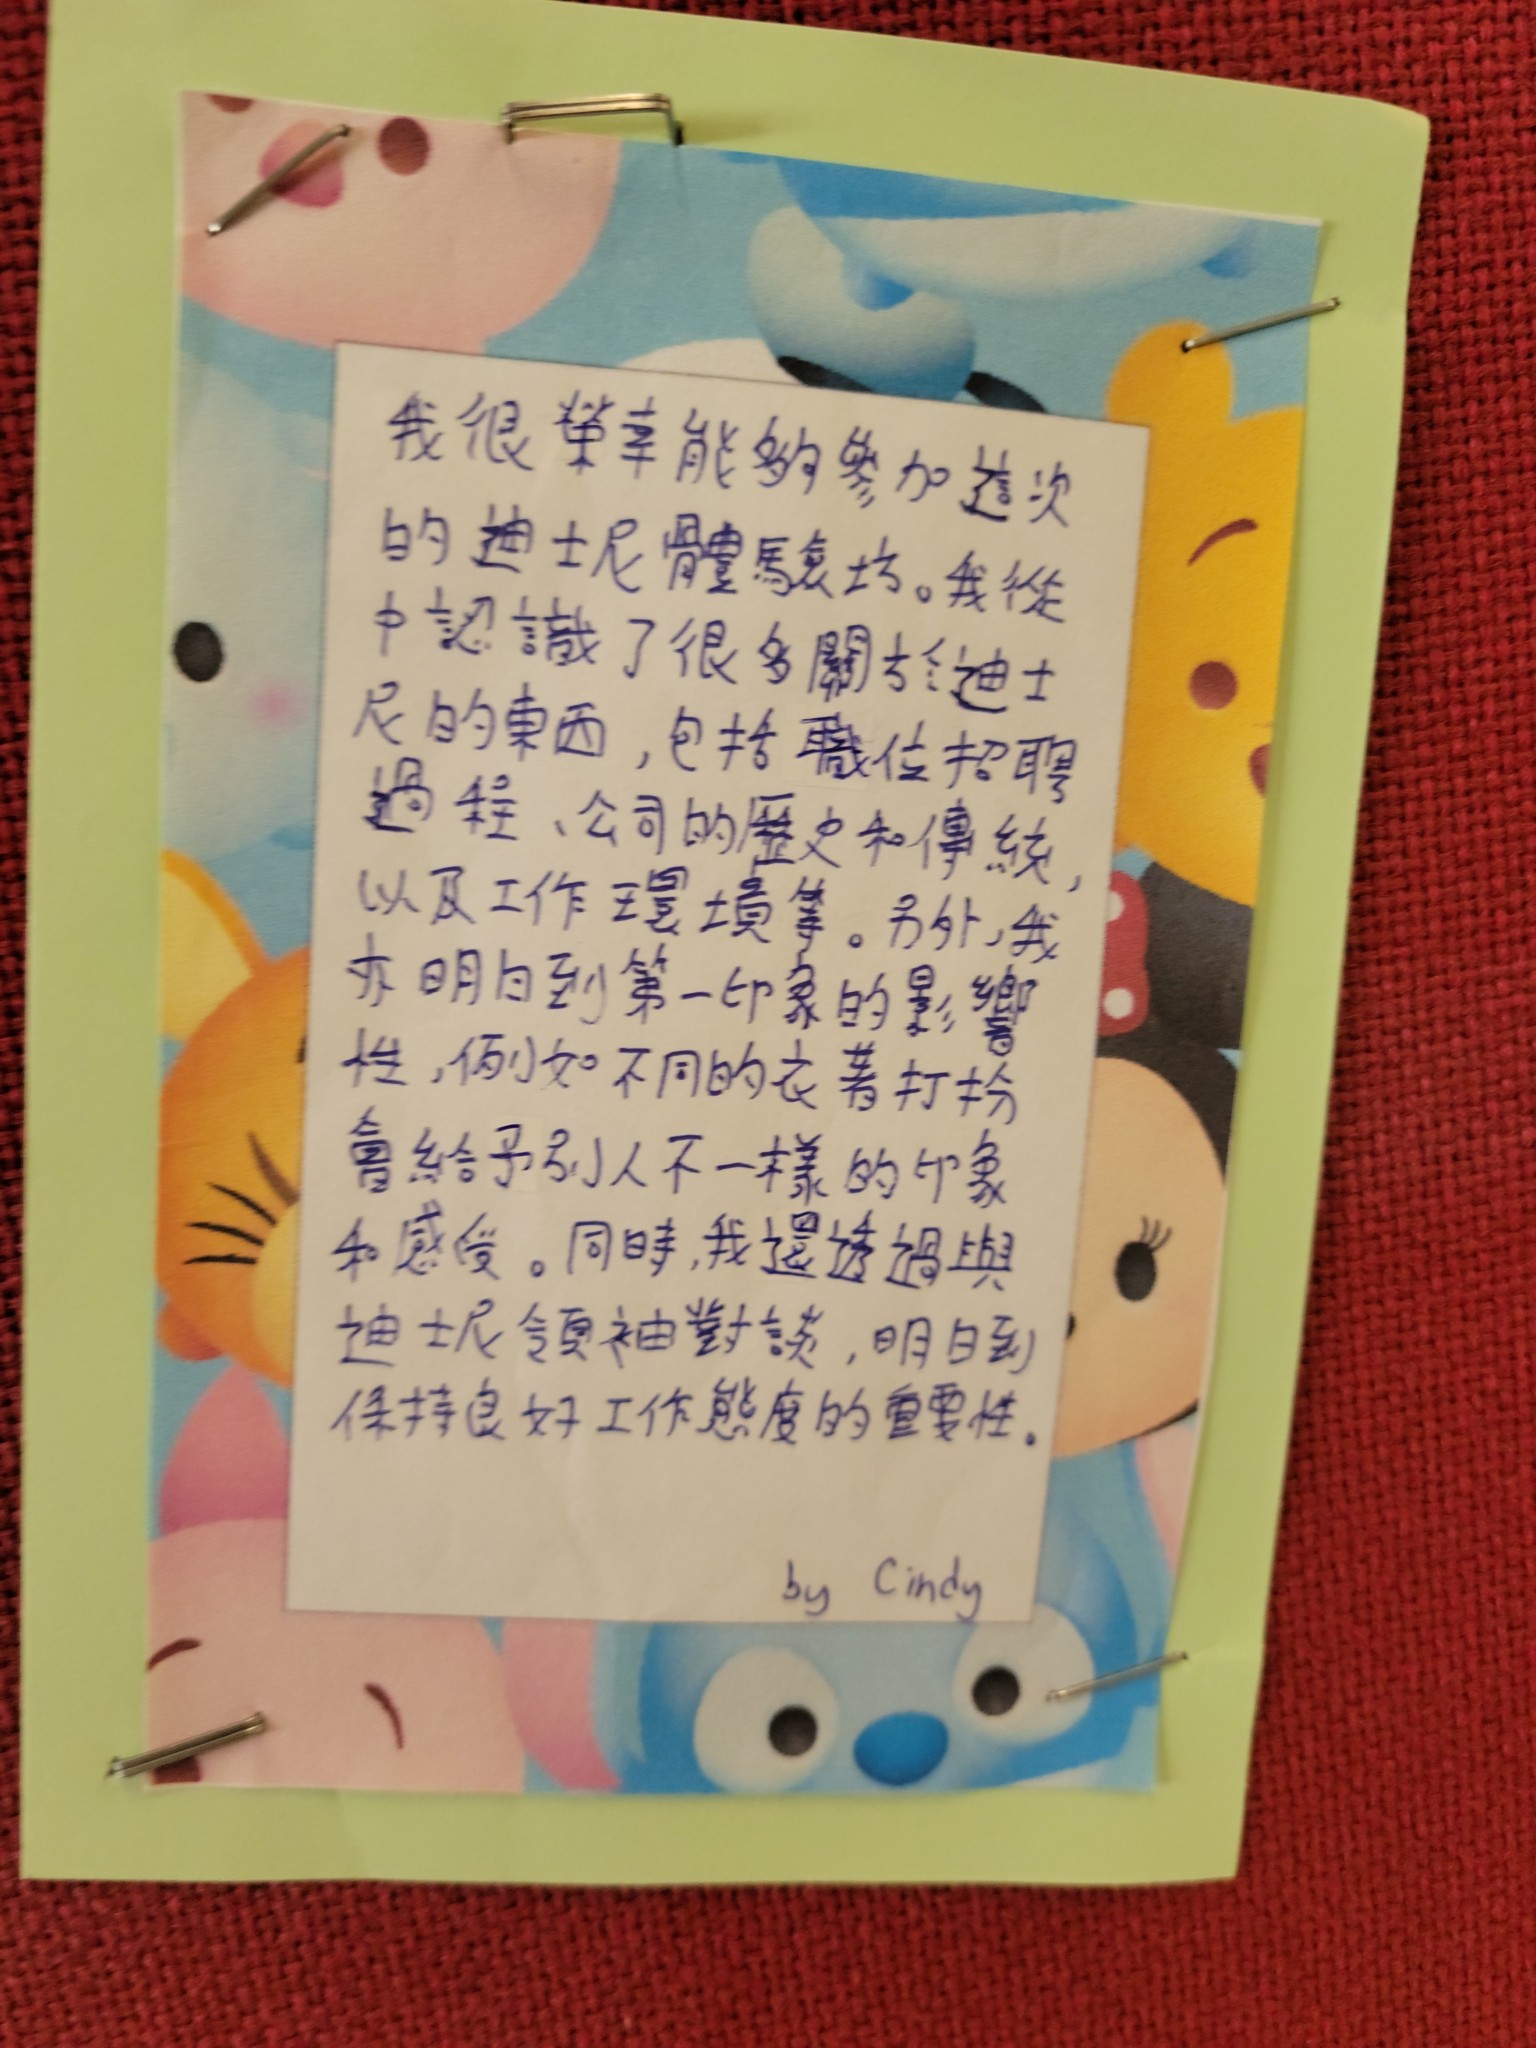 我很榮幸能夠參加這次
的迪士尼體驗坊。我從
中認識了很多關於迪士
尼的東西，包括職位招聘
過程、公司的歷史和傳統，
以及工作環境等。另外，我
亦明白到第一印象的影響
性，例如不同的衣着打扮
會給予別人不一樣的印象
和感受。同時，我還透過與
迪士尼領袖對談，明白到
保持良好工作態度的重要性。
by Cindy